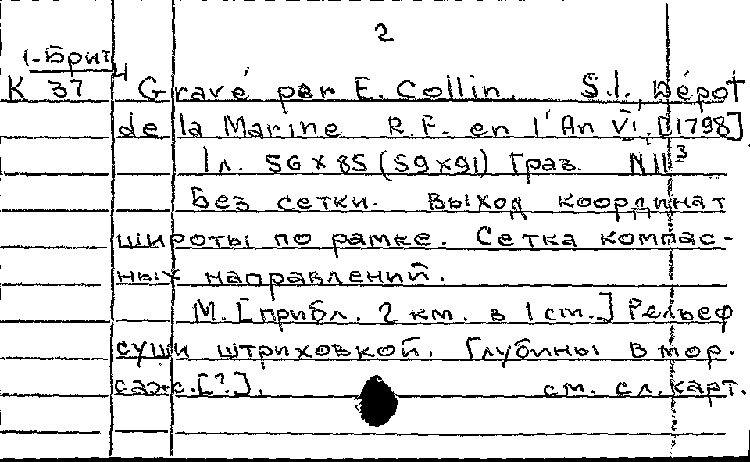 2
К 1-Брит 4
37
Gravé par E. Collin. S.l., Dépot
de la Marine R.F. en l'An VI, [1798]
1 л. 56 x 85 (59x91) Грав. N 11³
Без сетки. Выход координат
широты по рамке. Сетка компас-
ных направлений.
М. [прибл. 2 км. в 1 ст.] Рельеф
суши штриховкой. Глубины в мор.
саж. [?]. ст. сл. карт.